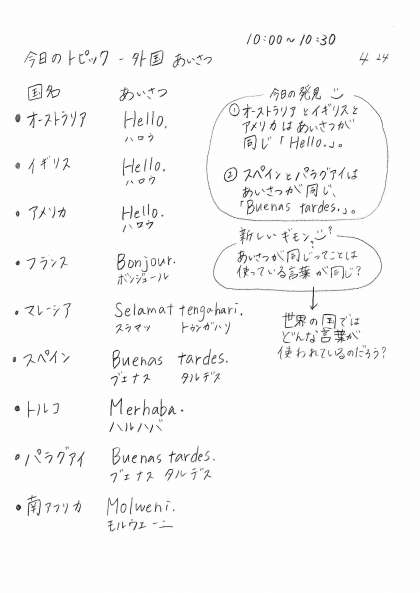 10:00～10:30
今日のトピック - 外国 あいさつ 4/24
国名 あいさつ
・オーストラリア Hello.
ハロウ
・イギリス Hello.
ハロウ
・アメリカ Hello.
ハロウ
・フランス Bonjour.
ボンジュール
・マレーシア Selamat tengahari.
スラマッ トゥンガハリ
・スペイン Buenas tardes.
ブエナス タルデス
・トルコ Merhaba.
ハルハバ
・パラグアイ Buenas tardes.
ブエナス タルデス
・南アフリカ Molweni.
モルウェーニ
今日の発見
① オーストラリアとイギリスと
アメリカはあいさつが
同じ「Hello.」。
② スペインとパラグアイは
あいさつが同じ、
「Buenas tardes.」。
新しいギモン?
あいさつが同じってことは
使っている言葉が同じ?
↓
世界の国では
どんな言葉が
使われているのだろう?